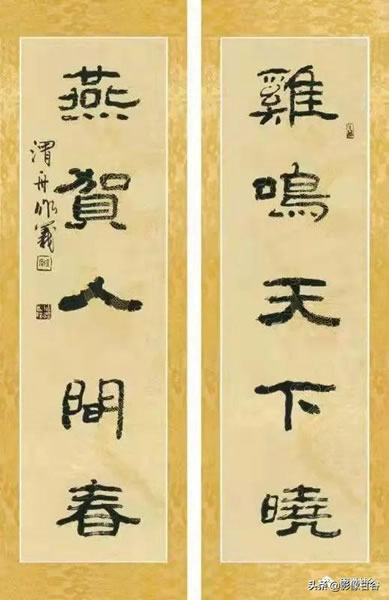 雞鳴天下曉
燕賀人間春
渭舟
头条@影像甘谷